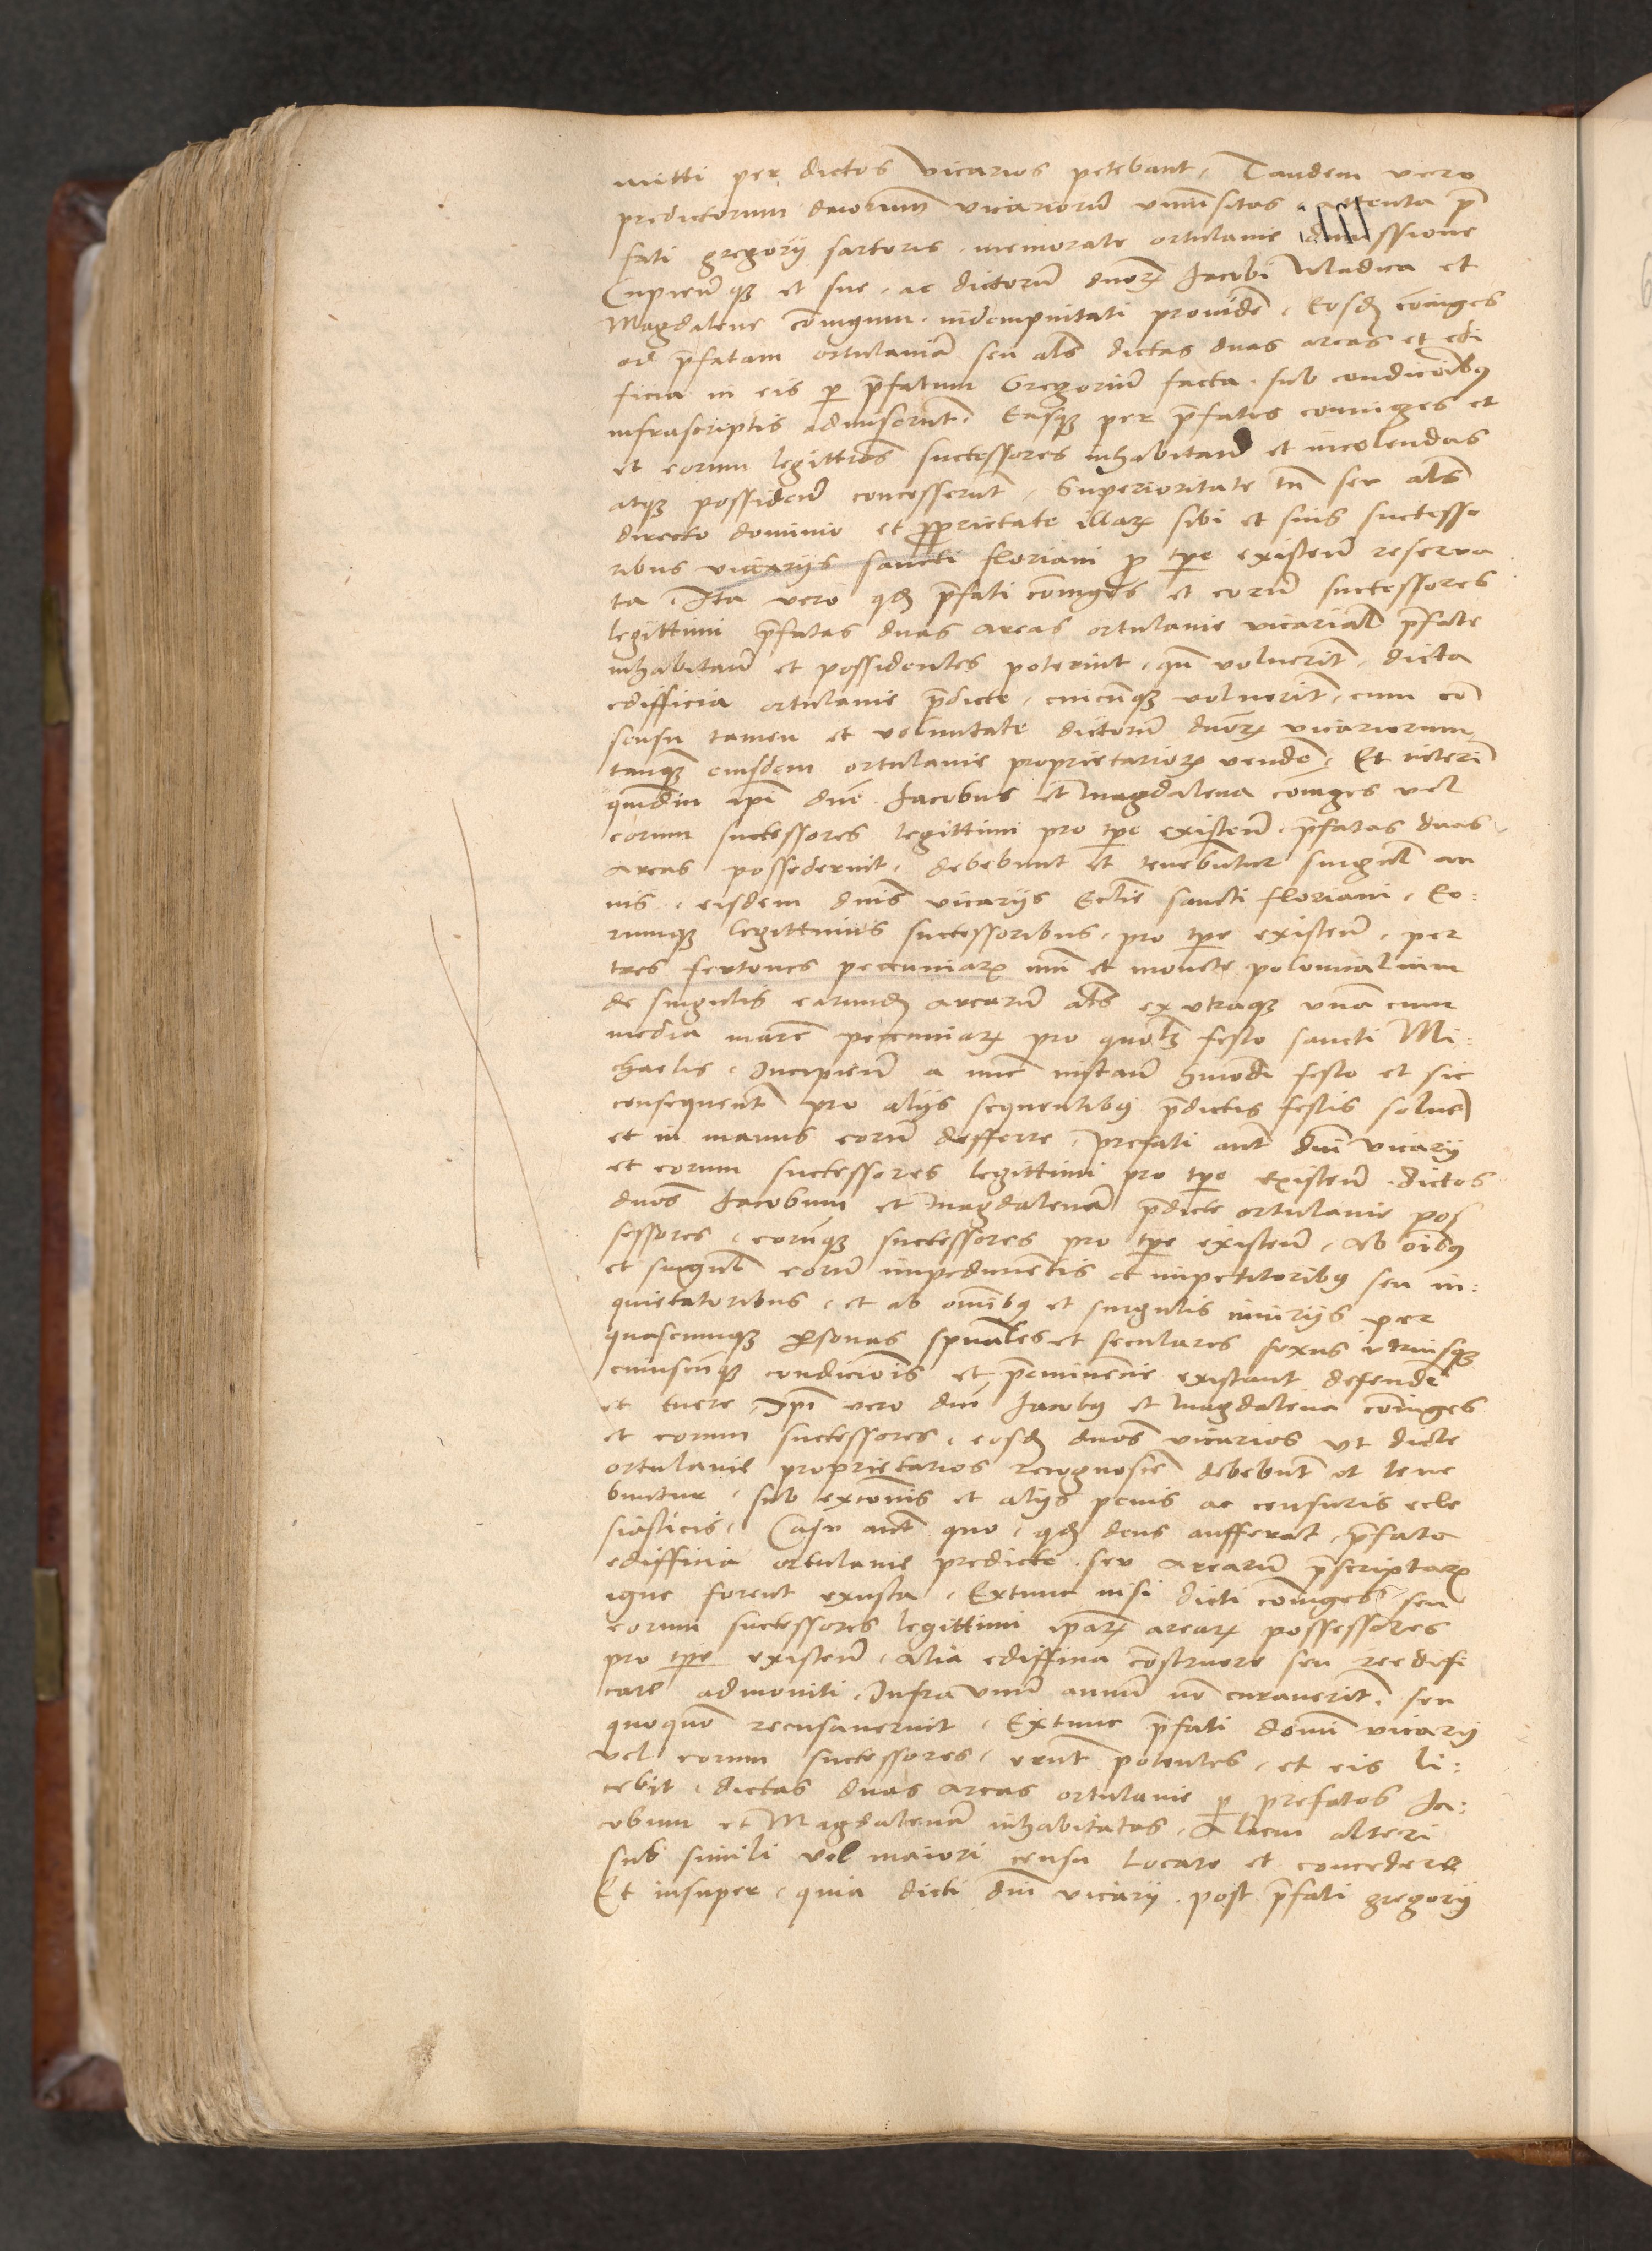 mitti per dictos vicarios petebant, Tandem vero
predictorum dnorum vicariorũ vniũsitas attenta p̃
fati gregorij sartoris memorate ortulanie dimissione
Cupieñ qȝ et sue ac dictorũ dnorꝝ Jacobi Wladica et
Magdalene coniugum indempnitati prouidẽ, Eosdȝ coniuges
ad p̃fatam ortulaniã seu als dictas duas areas et edi
ficia in eis ꝑ p̃fatum Gregoriũ facta sub condicõibꝯ
infrascriptis admiserũt. Easqȝ per p̃fatos coniuges et
et eorum legittimos successores inhabitand et incolendas
atqȝ possideñ concesserũt, Superioritate tñ seu als
directo dominio et ꝓprietate illarꝝ sibi et suis successo
ribus vicarijs sancti floriani ꝓ tꝑe existeñ reserva
ta. Ita vero qȝ p̃fati cõiuges et eorũ successores
legittimi p̃fatas duas areas ortulanie vicarial p̃fate
inhabitañ et possidentes poterint, qñ voluerĩt, dicta
edifficia ortulanie p̃dicte, cuicũqȝ voluerĩt, cum cõ
sensu tamen et voluntate dictorũ dnorꝝ vicariorum
tanqȝ eiusdem ortulanie proprietariorꝝ vendẽ, Et interĩ
quãdiu ipi dni Jacobus et Magdalena coniuges vel
eorum successores legittimi pro tꝑe existeñ p̃fatas duas
areas possederint, debebunt et tenebũtur singul an
nis, eisdem dnis vicarijs Ecclie sancti floriani, Eo:
rumqȝ legittimis successoribus, pro tꝑe existeñ, per
tres fertones pecuniarꝝ nũi et monete polonicalium
de singulis earundȝ arearũ als ex vtraqȝ vna cum
media marc̃ pecuniarꝝ pro quolȝ festo sancti Mi:
chaelis, Incipieñ a nunc instañ hmõdi festo et sic
consequent̃ pro alijs sequentibꝯ p̃dictis festis soluẽ
et in manus eorũ defferre, prefati aut̃ dni vicarij
et eorum successores legittimi pro tꝑe existeñ dictos
dnos Jacobum et Magdalenã p̃dicte ortulanie pos
sessores, eorũqȝ successores pro tꝑe existeñ, Ab oĩbꝯ
et singul eorũ impedimentis et impetitoribꝯ seu in:
quietatoribus, et ab omĩbꝯ et singulis iniurijs per
quascumqȝ ꝑsonas spũales et seculares sexus vtriusqȝ
cuiuscũqȝ condicionis et p̃eminencie existant defendẽ
et tuere, Ipi vero dni Jacobꝯ et Magdalena cõiuges
et eorum successores, eosdȝ dnos vicarios vt dicte
ortulanie proprietarios recognoscẽ debebũt et tene
buntur, sub excõnis et alijs penis ac censuris eccle
siasticis, Casu aut̃ quo, qȝ deus aufferat, p̃fata
edifficia ortulanie predicte seu arearũ p̃scriptarꝝ
igne forent exusta, Extunc nisi dicti cõiuges seu
eorum successores legittimi ipsarꝝ arearꝝ possessores
pro tꝑe existeñ, Alia edifficia cõstruere seu reedifi
care admoniti, Infra vnũ annũ nõ curauerĩt, seu
quoquõ recusauerint, Extunc p̃fati domi vicarij
vel eorum successores, erũt potentes, et eis li:
cebit, dictas duas areas ortulanie ꝑ prefatos Ja:
cobum et Magdalenã inhabitatas, Aliem alteri
sub simili vel maiori censu Locare et concedere
Et insuper, quia dicti dni vicarij post p̃fati gregorij